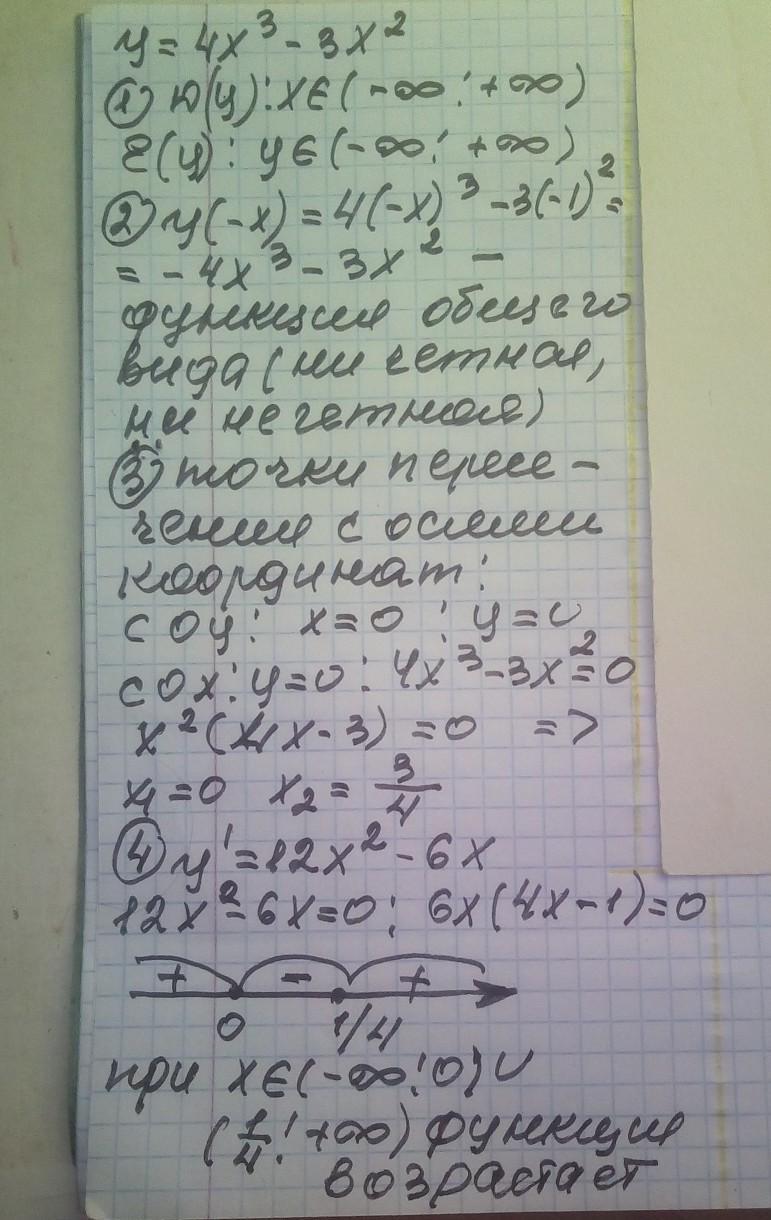 y = 4x³ - 3x²
① D(y): x∈(-∞; +∞)
E(y): y∈(-∞; +∞)
② y(-x) = 4(-x)³ - 3(-1)² =
= -4x³ - 3x² -
функция общего
вида (ни четная,
ни нечетная)
③ точки пересе-
чения с осями
координат:
с oy: x=0; y=0
с ox: y=0: 4x³-3x²=0
x²(4x-3) =0 =>
x₁=0 x₂= 3/4
④ y' =12x² - 6x
12x²-6x=0; 6x(4x-1)=0
+ - +
0 1/4
при x∈(-∞;0)∪
(1/4; +∞) функция
возрастает